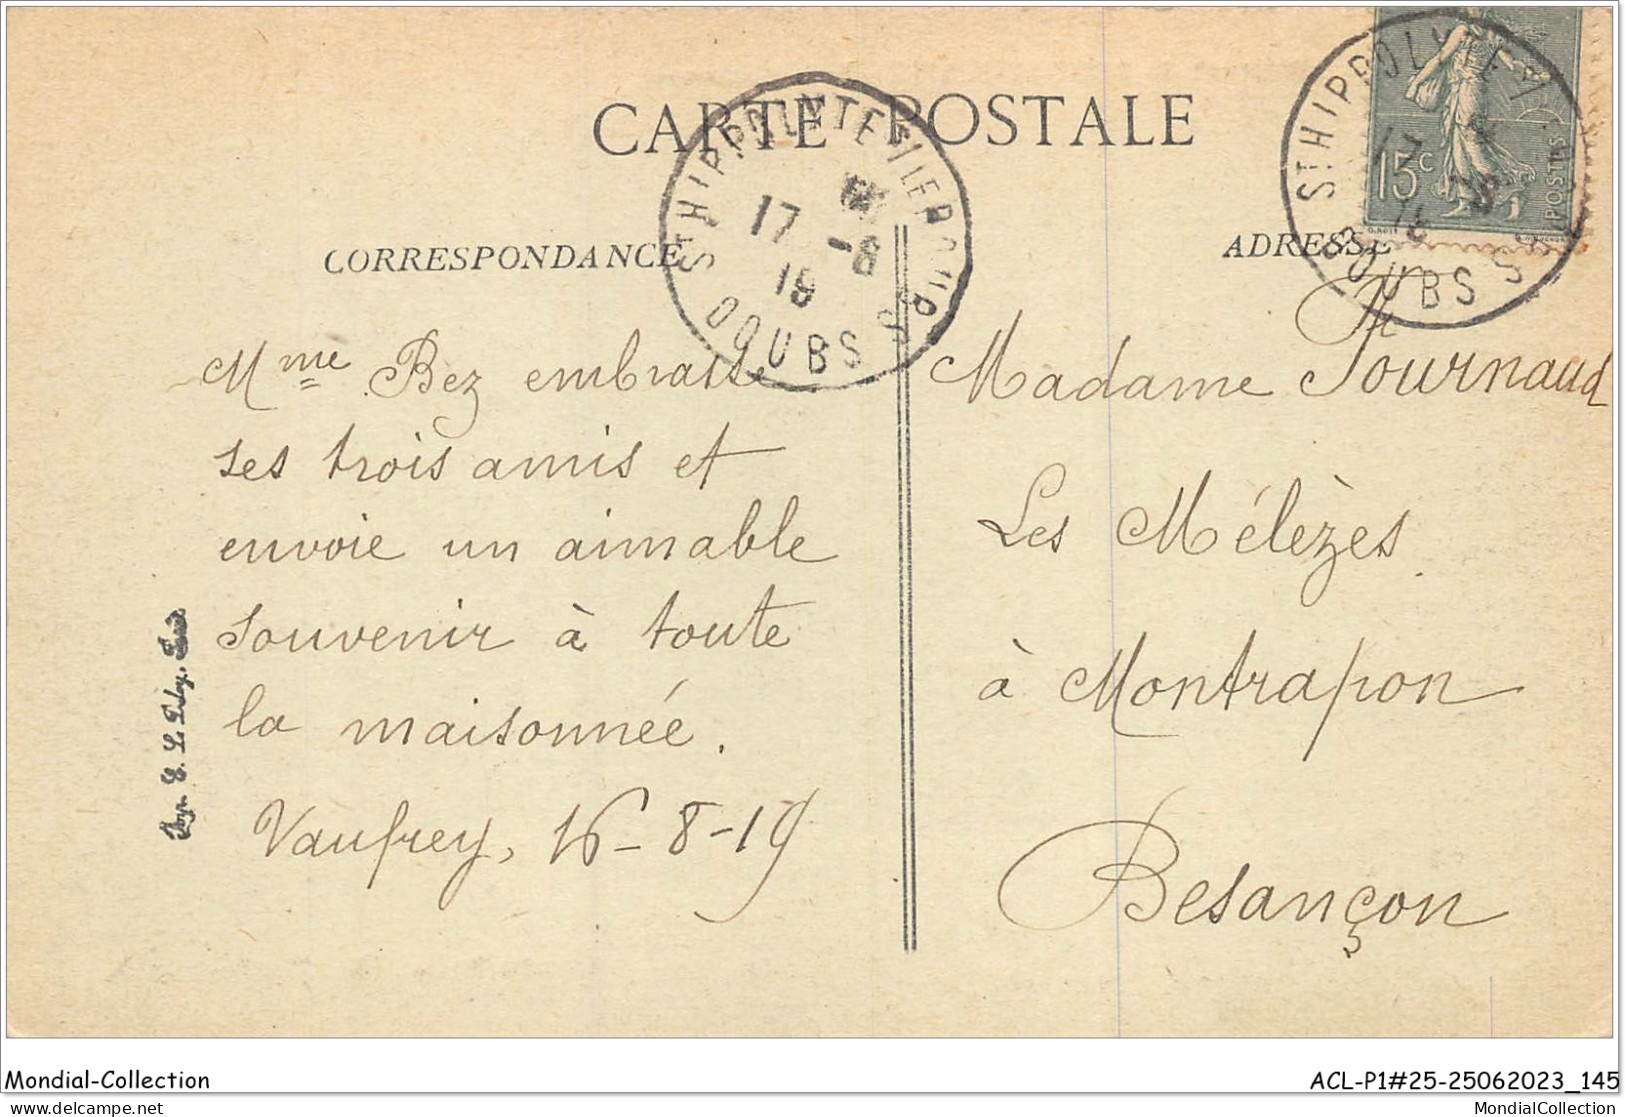 CARTE POSTALE
CORRESPONDANCE
ADRESSE
ST HIPPOLYTE
17 -8
19
DOUBS
ST HIPPOLYTE
DOUBS
15c
POSTES
Mme Bez embrasse
ses trois amis et
envoie un aimable
souvenir à toute
la maisonnée.
Vaufrey, 16-8-19
Madame Journaud
Les Mélèzes
à Montrapon
Besançon
Imp. E. Le Deley, Paris
Mondial-Collection
ACL-P1#25-25062023_145
delcampe.net
MondialCollection